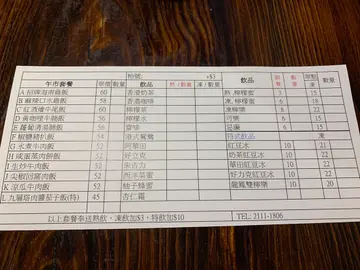 枱號: +$3
午市套餐 單價 數量 飲品 熱/數量 凍/數量 飲品 數量
A 招牌海南雞飯 60 香港奶茶 熱, 檸檬蜜 3 15
B 麻辣口水雞飯 58 香港咖啡 凍, 檸檬蜜 3 18
C 紅酒燴牛尾飯 60 檸檬茶 檸檬樂 3 18
D 黃咖哩牛腩飯 56 檸檬水 15
E 蘿蔔清湯腩飯 56 齋啡 豆漿 15
F 椒鹽豬扒飯 54 港式鴛鴦 特式飲品 凍
G 水煮牛肉飯 52 阿華田 紅豆冰 10 21
H 咸蛋蒸肉餅飯 52 好立克 鮮奶紅豆冰 10 22
I 生炒牛肉飯 52 朱古力 椰汁紅豆冰 10 22
J 尖椒回窩肉飯 52 西洋菜蜜 好力克紅豆冰 10 22
K 涼瓜牛肉飯 52 柚子蜂蜜 龍鳳雙檸樂 10 20
L 九層塔肉醬茄子飯(特) 45 杏仁霜
以上套餐奉送熱飲, 凍飲加$3, 特飲加$10 TEL: 2111-1806